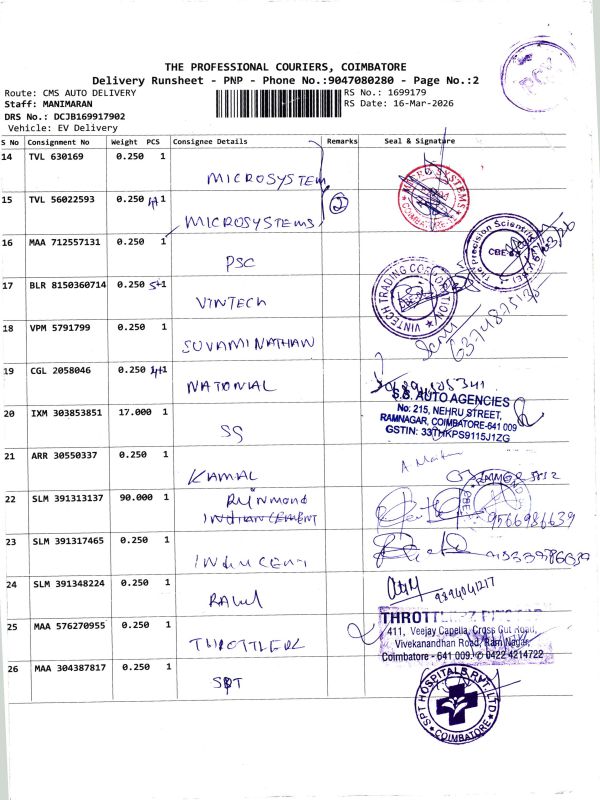 THE PROFESSIONAL COURIERS, COIMBATORE
Delivery Runsheet - PNP - Phone No.:9047080280 - Page No.:2
Route: CMS AUTO DELIVERY
RS No.: 1699179
Staff: MANIMARAN
RS Date: 16-Mar-2026
DRS No.: DCJB169917902
Vehicle: EV Delivery
S No Consignment No Weight PCS Consignee Details Remarks Seal & Signature
14 TVL 630169 0.250 1 MICROSYSTEM
15 TVL 56022593 0.250 1 MICROSYSTEMS
2
MICRO SYSTEMS
16 MAA 712557131 0.250 1 PSC
The Precision Scientific
CBE
17 BLR 8150360714 0.250 1 VINTECH
VINTECH TRADING CORPORATION
18 VPM 5791799 0.250 1 SUVAMINATHAN
19 CGL 2058046 0.250 1 NATIONAL
20 IXM 303853851 17.000 1 SS
S.S. AUTO AGENCIES
No: 215, NEHRU STREET,
RAMNAGAR, COIMBATORE-641 009
21 ARR 30550337 0.250 1 KAMAL
22 SLM 391313137 90.000 1 RAYMOND
9566986639
23 SLM 391317465 0.250 1
24 SLM 391348224 0.250 1 RAHUL
9894041217
25 MAA 576270955 0.250 1 THROTTLERZ
411, Veejay Capella, Cross Cut Road,
Vivekanandhan Road, Ram Nagar,
Coimbatore - 641 009. 0422 4214722
26 MAA 304387817 0.250 1 SPT
SPT HOSPITALS PVT. LTD
COIMBATORE